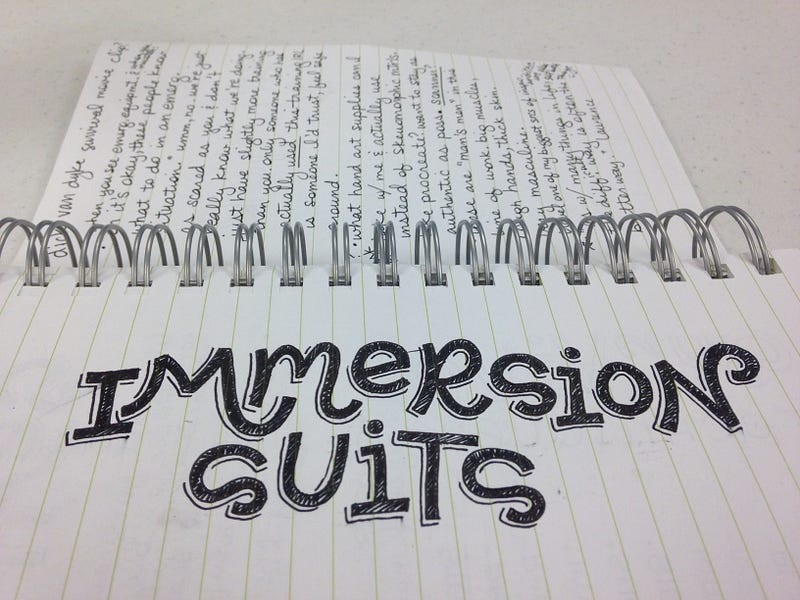 dick van dyke survival movie clip?
when you see emerg. equipmt &
it's okay these people know
what to do in an emerg.
situation" umm, no. we're just
as scared as you & don't
really know what we're doing.
just have slightly more training
than you. only someone who has
actually used this training IRL
is someone I'd trust, feel safe
around.
? • what hand art supplies can I
w/ me & actually use
instead of skeuomorphic
procreate? want to stay as
authentic as poss
are "man's man" in this
of work big muscles,
hands, thick skin.
masculine.
one of my biggest
w/ many things in
diff. way is often the
better way. + Laurence
IMMERSION
SUITS